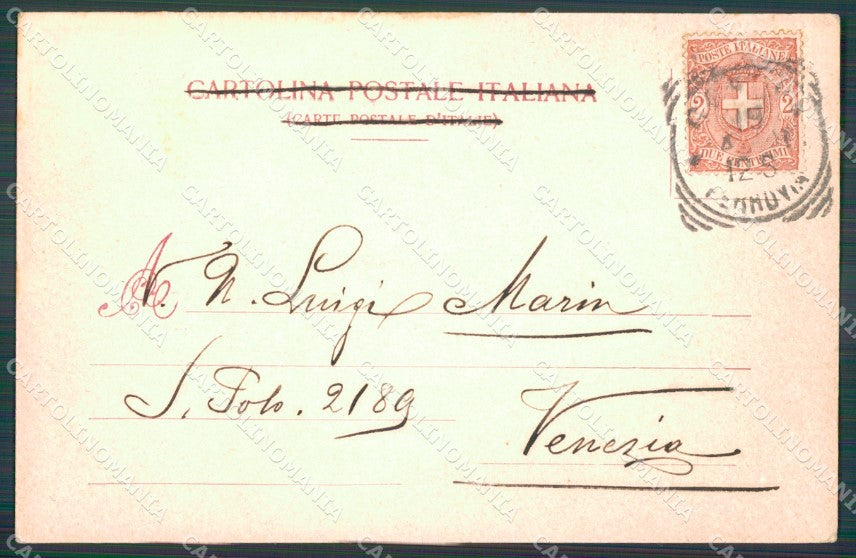 CARTOLINA POSTALE ITALIANA
(CARTE POSTALE D'ITALIE)
POSTE ITALIANE
2 2
DUE CENTESIMI
19
12-S
FERROVIA
A
N. N. Luigi Marin
S. Polo. 2189
Venezia
CARTOLINOMANIA